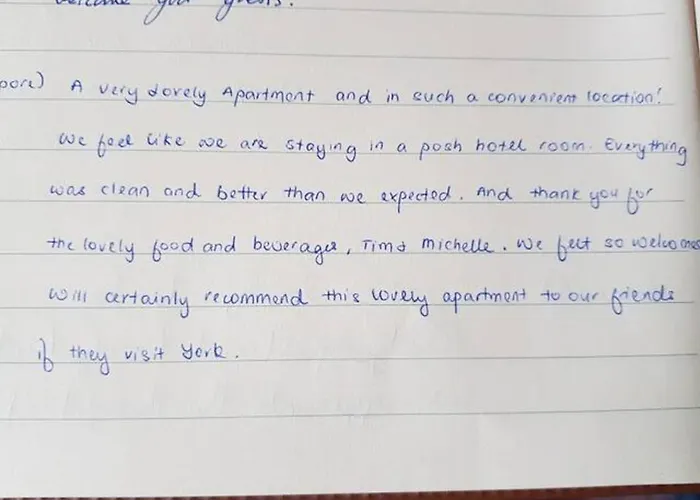 your guests.
pore) A very lovely Apartment and in such a convenient location!
We feel like we are staying in a posh hotel room. Everything
was clean and better than we expected. And thank you for
the lovely food and beverages, Tim & Michelle. We felt so welcomed
will certainly recommend this lovely apartment to our friends
if they visit York.